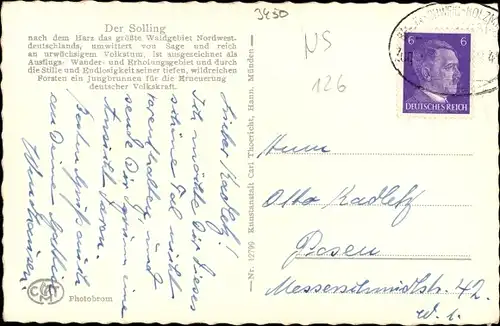 3450
Der Solling
nach dem Harz das größte Waldgebiet Nordwest-
deutschlands, umwittert von Sage und reich
an urwüchsigem Volkstum, ist ausgezeichnet als
Ausflugs- Wander- und Erholungsgebiet und durch
die Stille und Endlosigkeit seiner tiefen, wildreichen
Forsten ein Jungbrunnen für die Erneuerung
deutscher Volkskraft.
NS
126
6 6
DEUTSCHES REICH
Lieber Kadletz!
Ich möchte Dir dieses
schöne Tal nicht
vorenthalten und
sende Dir gern eine
Ansicht davon.
Beste Grüße auch
an Deine Gattin
Nr. 12799 Kunstanstalt Carl Thoericht, Hann. Münden
Photobrom
Herrn
Otto Kadletz
Posen
Messerschmidtstr. 42.
W. 1.